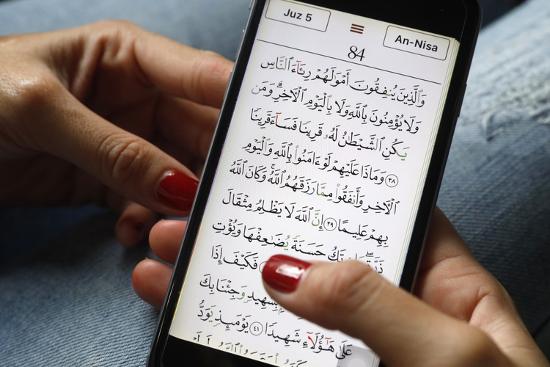 Juz 5
84
An-Nisa
وَٱلَّذِينَ يُنفِقُونَ أَمْوَٰلَهُمْ رِئَآءَ ٱلنَّاسِ
وَلَا يُؤْمِنُونَ بِٱللَّهِ وَلَا بِٱلْيَوْمِ ٱلْأَخِرِ ۗ وَمَن
يَكُنِ ٱلشَّيْطَٰنُ لَهُۥ قَرِينًا فَسَآءَ قَرِينًا
٣٨ وَمَاذَا عَلَيْهِمْ لَوْ ءَامَنُوا۟ بِٱللَّهِ وَٱلْيَوْمِ
ٱلْأَخِرِ وَأَنفَقُوا۟ مِمَّا رَزَقَهُمُ ٱللَّهُ ۚ وَكَانَ ٱللَّهُ
بِهِمْ عَلِيمًا ٣٩ إِنَّ ٱللَّهَ لَا يَظْلِمُ مِثْقَالَ
ذَرَّةٍ ۖ تَكُ حَسَنَةً يُضَٰعِفْهَا وَيُؤْتِ
فَكَيْفَ إِذَا
بِشَهِيدٍ وَجِئْنَا بِكَ
عَلَىٰ هَٰٓؤُلَآءِ شَهِيدًا ٤١ يَوْمَئِذٍ يَوَدُّ